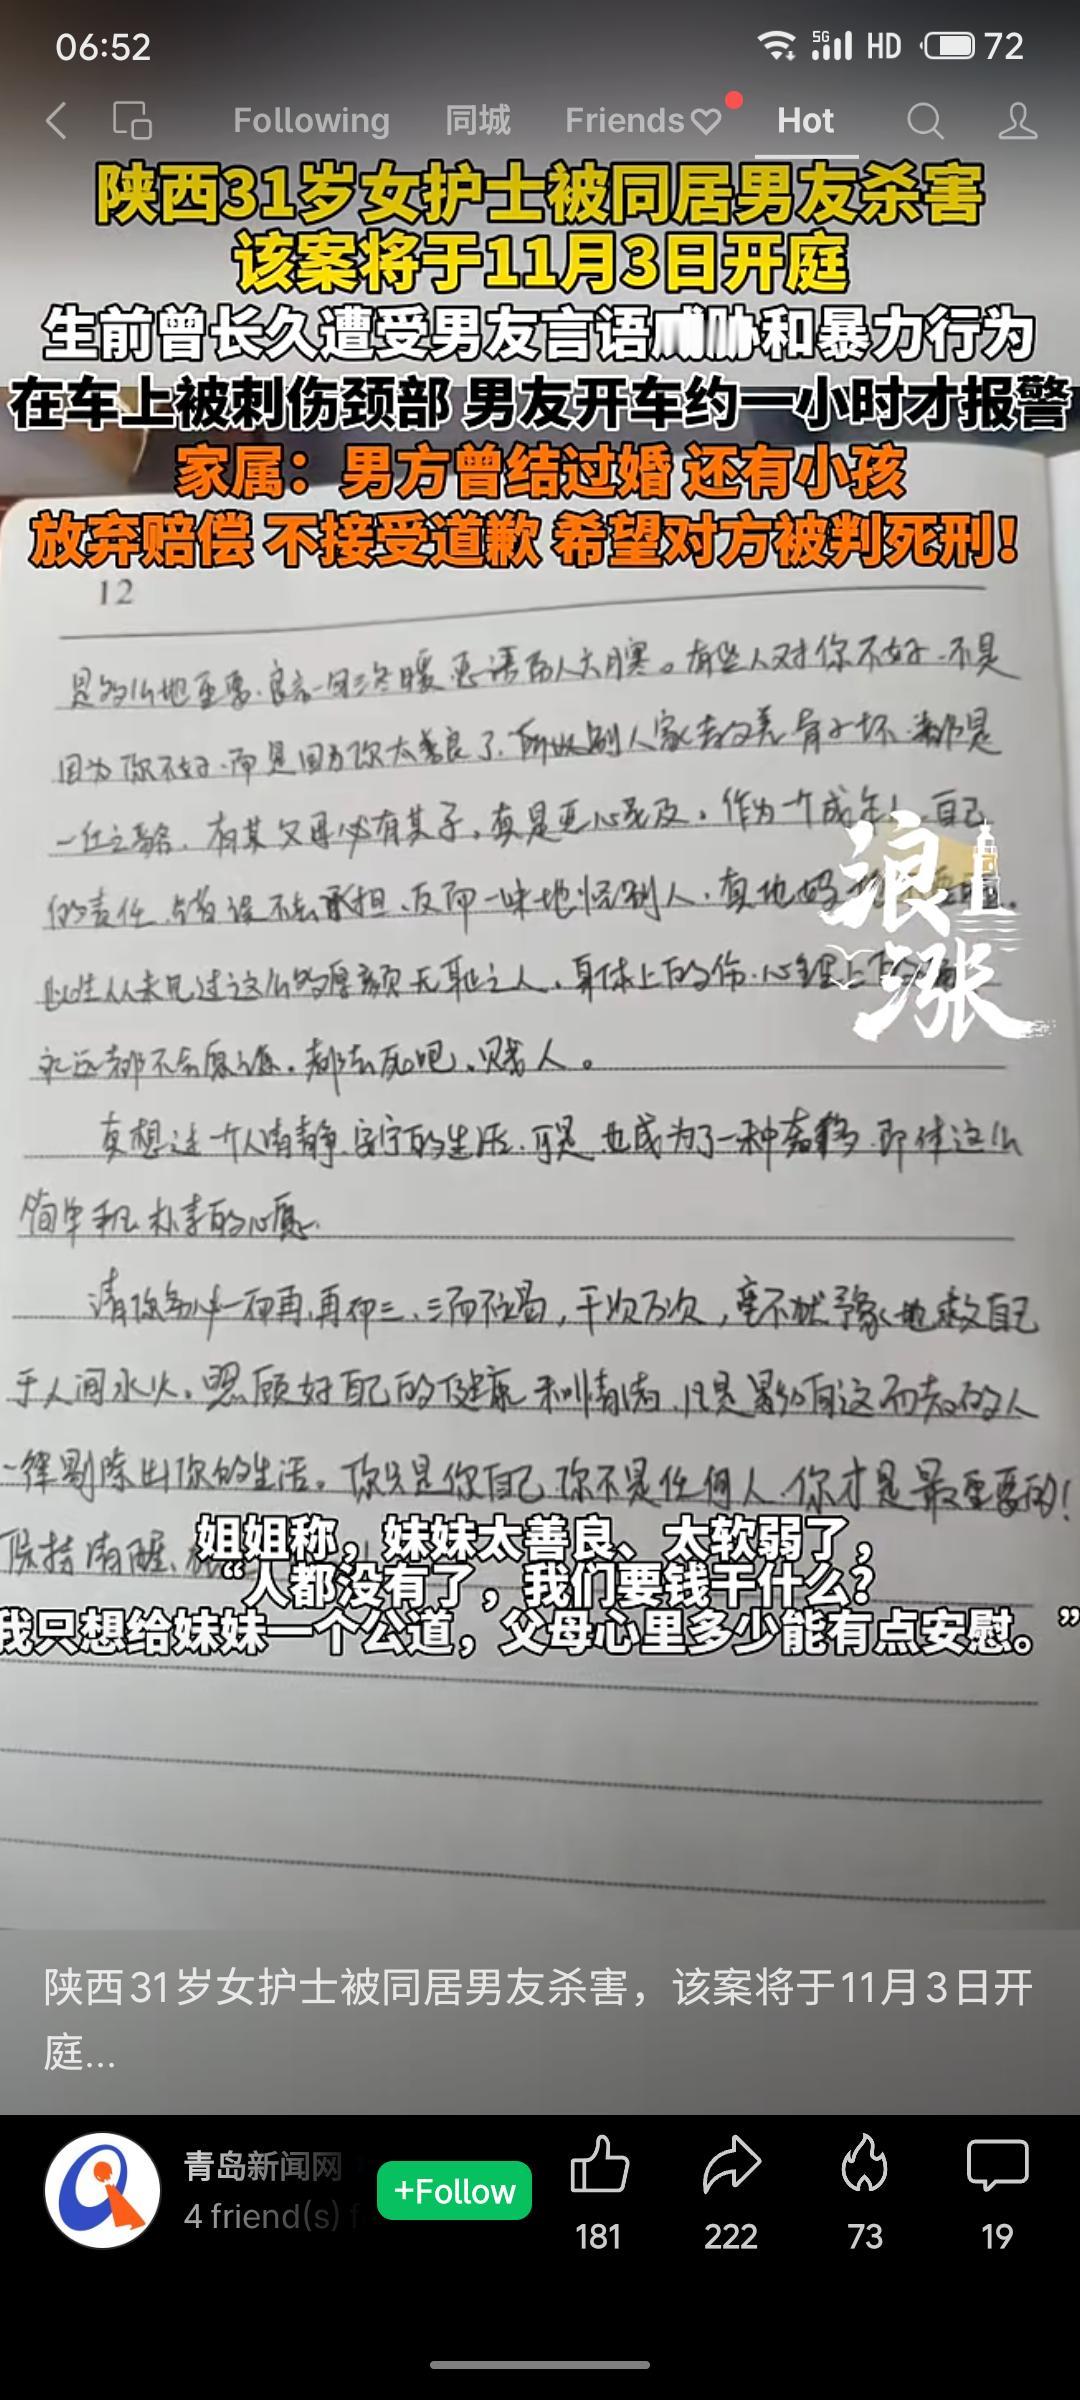 06:52
5G HD 72
Following 同城 Friends Hot
陕西31岁女护士被同居男友杀害
该案将于11月3日开庭
生前曾长久遭受男友言语威胁和暴力行为
在车上被刺伤颈部 男友开车约一小时才报警
家属：男方曾结过婚 还有小孩
放弃赔偿 不接受道歉 希望对方被判死刑！
12
良言一句三冬暖 恶语伤人六月寒。有些人对你不好、不是
因为你不好、而是因为你太善良了、所以别人家
有其父母必有其子，真是恶心至及。作为一个成年人、自己
的责任、错误不去承担、反而一味地怪别人、真他妈
此生从未见过这么的厚颜无耻之人、身体上的伤、心理上的
永远都不会原谅。都去死吧、贱人。
真想过一个人清静、安宁的生活、可是也成为了一种奢移、即使这么
简单和朴素的心愿。
请你务必一而再、再而三、三而不竭，千次万次，毫不犹豫地救自己
于人间水火。照顾好自己的健康和情绪、凡是
一律剔除出你的生活。你只是你自己、你不是任何人、你才是最重要的！
保持清醒、
浪
涨
姐姐称，妹妹太善良、太软弱了，
“人都没有了，我们要钱干什么？
我只想给妹妹一个公道，父母心里多少能有点安慰。”
陕西31岁女护士被同居男友杀害，该案将于11月3日开
庭...
青岛新闻网
4 friend(s) f
+Follow
181 222 73 19